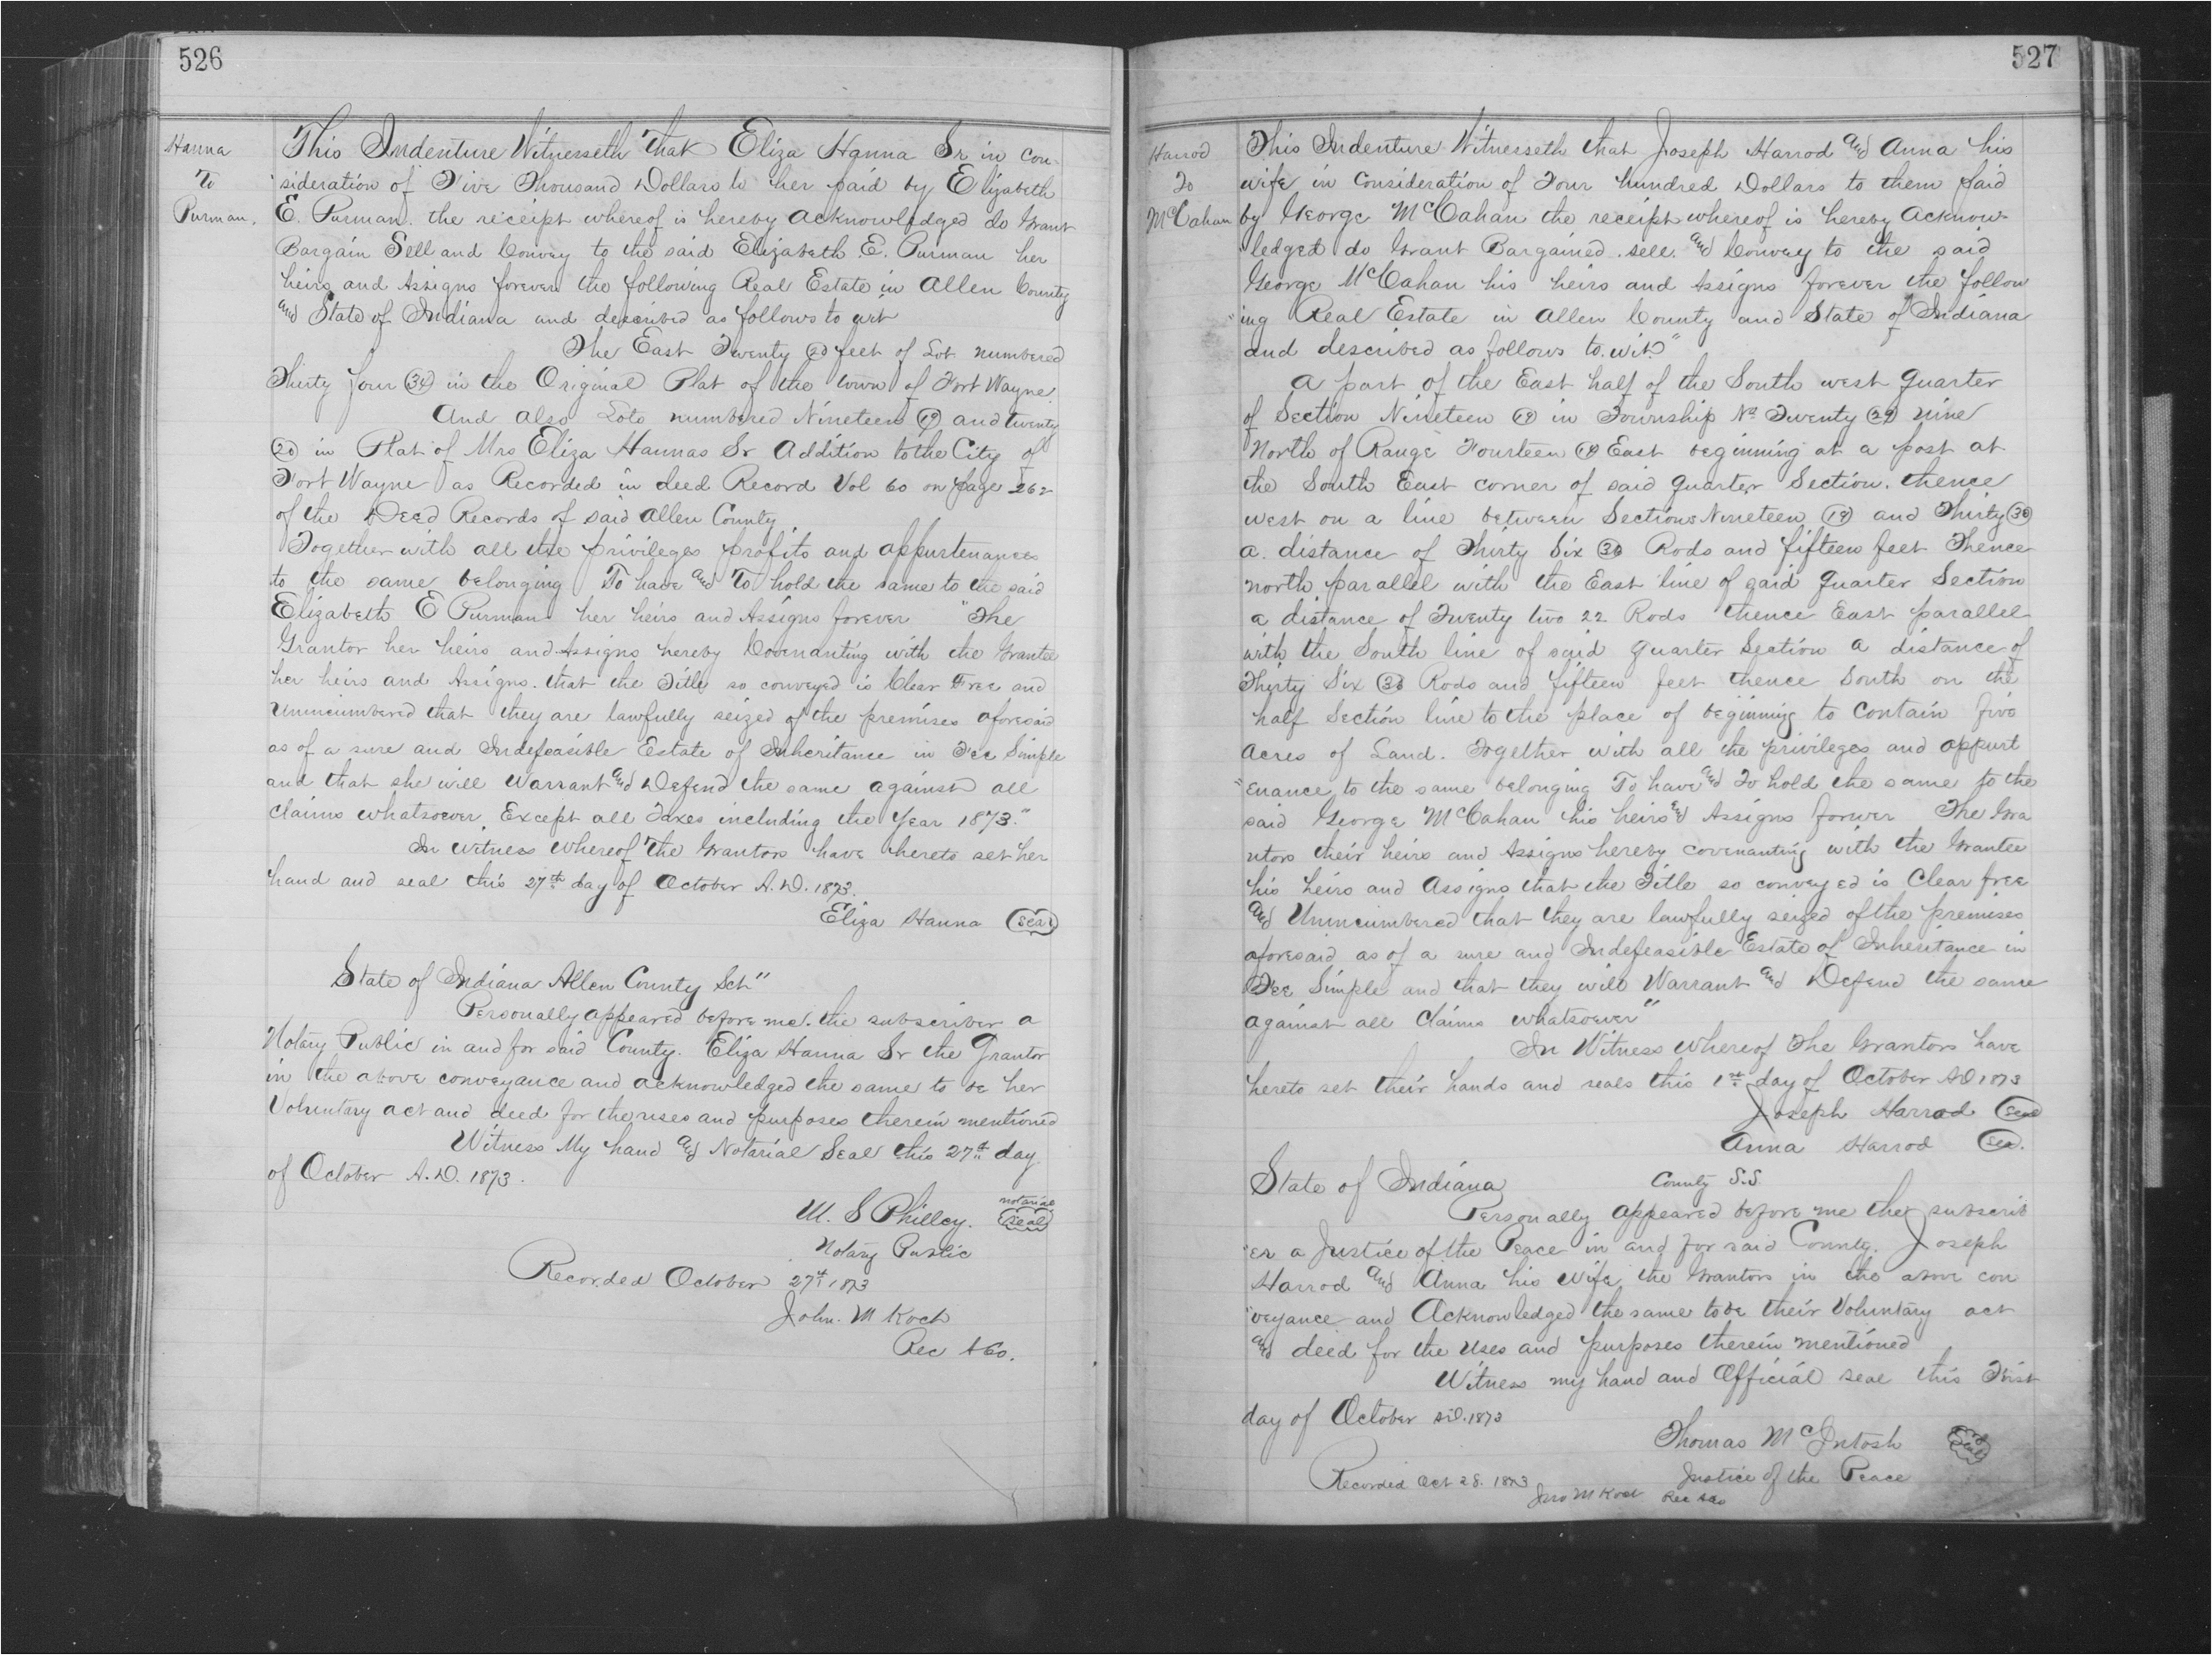 526
Hanna
To
Purman.
This Indenture Witnesseth That Eliza Hanna Sr in con-
sideration of Five Thousand Dollars to her paid by Elizabeth
E. Purman. the receipt whereof is hereby acknowledged do Grant
Bargain Sell and Convey to the said Elizabeth E. Purman her
heirs and Assigns forever the following Real Estate in Allen County
and State of Indiana and described as follows to wit
The East Twenty 20 feet of Lot numbered
Thirty four 34 in the Original Plat of the town of Fort Wayne.
And also Lots numbered Nineteen 19 and twenty
20 in Plat of Mrs Eliza Hannas Sr Addition to the City of
Fort Wayne as Recorded in deed Record Vol 60 on page 262
of the Deed Records of said Allen County.
Together with all the privileges profits and appurtenances
to the same belonging To have and To hold the same to the said
Elizabeth E Purman her heirs and Assigns forever "The
Grantor her heirs and Assigns hereby Covenanting with the Grantee
her heirs and Assigns. that the Title so conveyed is Clear Free and
Unincumbered that they are lawfully seized of the premises aforesaid
as of a sure and Indefeasible Estate of Inheritance in Fee Simple
and that she will Warrant and Defend the same against all
Claims whatsoever. Except all Taxes including the Year 1873."
In witness whereof The Grantors have hereto set her
hand and seal this 27th day of October A.D. 1873.
Eliza Hanna Seal
State of Indiana Allen County Sct"
Personally appeared before me. the subscriber a
Notary Public in and for said County. Eliza Hanna Sr the Grantor
in the above conveyance and acknowledged the same to be her
Voluntary act and deed for the uses and purposes therein mentioned
Witness My hand and Notarial Seal this 27th day
of October A.D. 1873.
M. S Philley. notarial seal
Notary Public
Recorded October 27th 1873
John. M Koch
Rec A Co.
527
Harrod
To
McCahan
This Indenture Witnesseth that Joseph Harrod and Anna his
wife in Consideration of Four hundred Dollars to them paid
by George McCahan the receipt whereof is hereby Acknow-
ledged do Grant Bargained. sell. and Convey to the said
George McCahan his heirs and Assigns forever the follow
"ing Real Estate in Allen County and State of Indiana
and described as follows to. wit"
A part of the East half of the South west quarter
of Section Nineteen 19 in Township No Twenty 29 nine
North of Range Fourteen 14 East beginning at a post at
the South East corner of said quarter Section. thence
west on a line between Sections Nineteen 19 and Thirty 30
a. distance of Thirty Six 36 Rods and fifteen feet Thence
north parallel with the East line of said quarter Section
a distance of Twenty two 22 Rods thence East parallel
with the South line of said quarter Section a distance of
Thirty Six 36 Rods and fifteen feet thence South on the
half Section line to the place of beginning to contain five
acres of Land. Together with all the privileges and appurt
"enance to the same belonging To have and To hold the same to the
said George McCahan his heirs and Assigns forever The Gra
ntors their heirs and Assigns hereby covenanting with the Grantee
his heirs and Assigns that the Title so conveyed is Clear free
and Unincumbered that they are lawfully seized of the premises
aforesaid as of a sure and Indefeasible Estate of Inheritance in
Fee Simple and that they will Warrant and Defend the same
against all Claims whatsoever"
In Witness whereof The Grantors have
hereto set their hands and seals this 1st day of October AD 1873
Joseph Harrod Seal
Anna Harrod Sea.
State of Indiana County S.S.
Personally appeared before me the subscrib
"er a Justice of the Peace in and for said County. Joseph
Harrod and Anna his Wife the Grantors in the above con
"veyance and Acknowledged the same to be their Voluntary act
and deed for the Uses and purposes therein mentioned
Witness my hand and Official seal this First
day of October AD. 1873
Thomas McIntosh Seal
Justice of the Peace
Recorded Oct 28. 1873 Jno M Koch Rec A Co